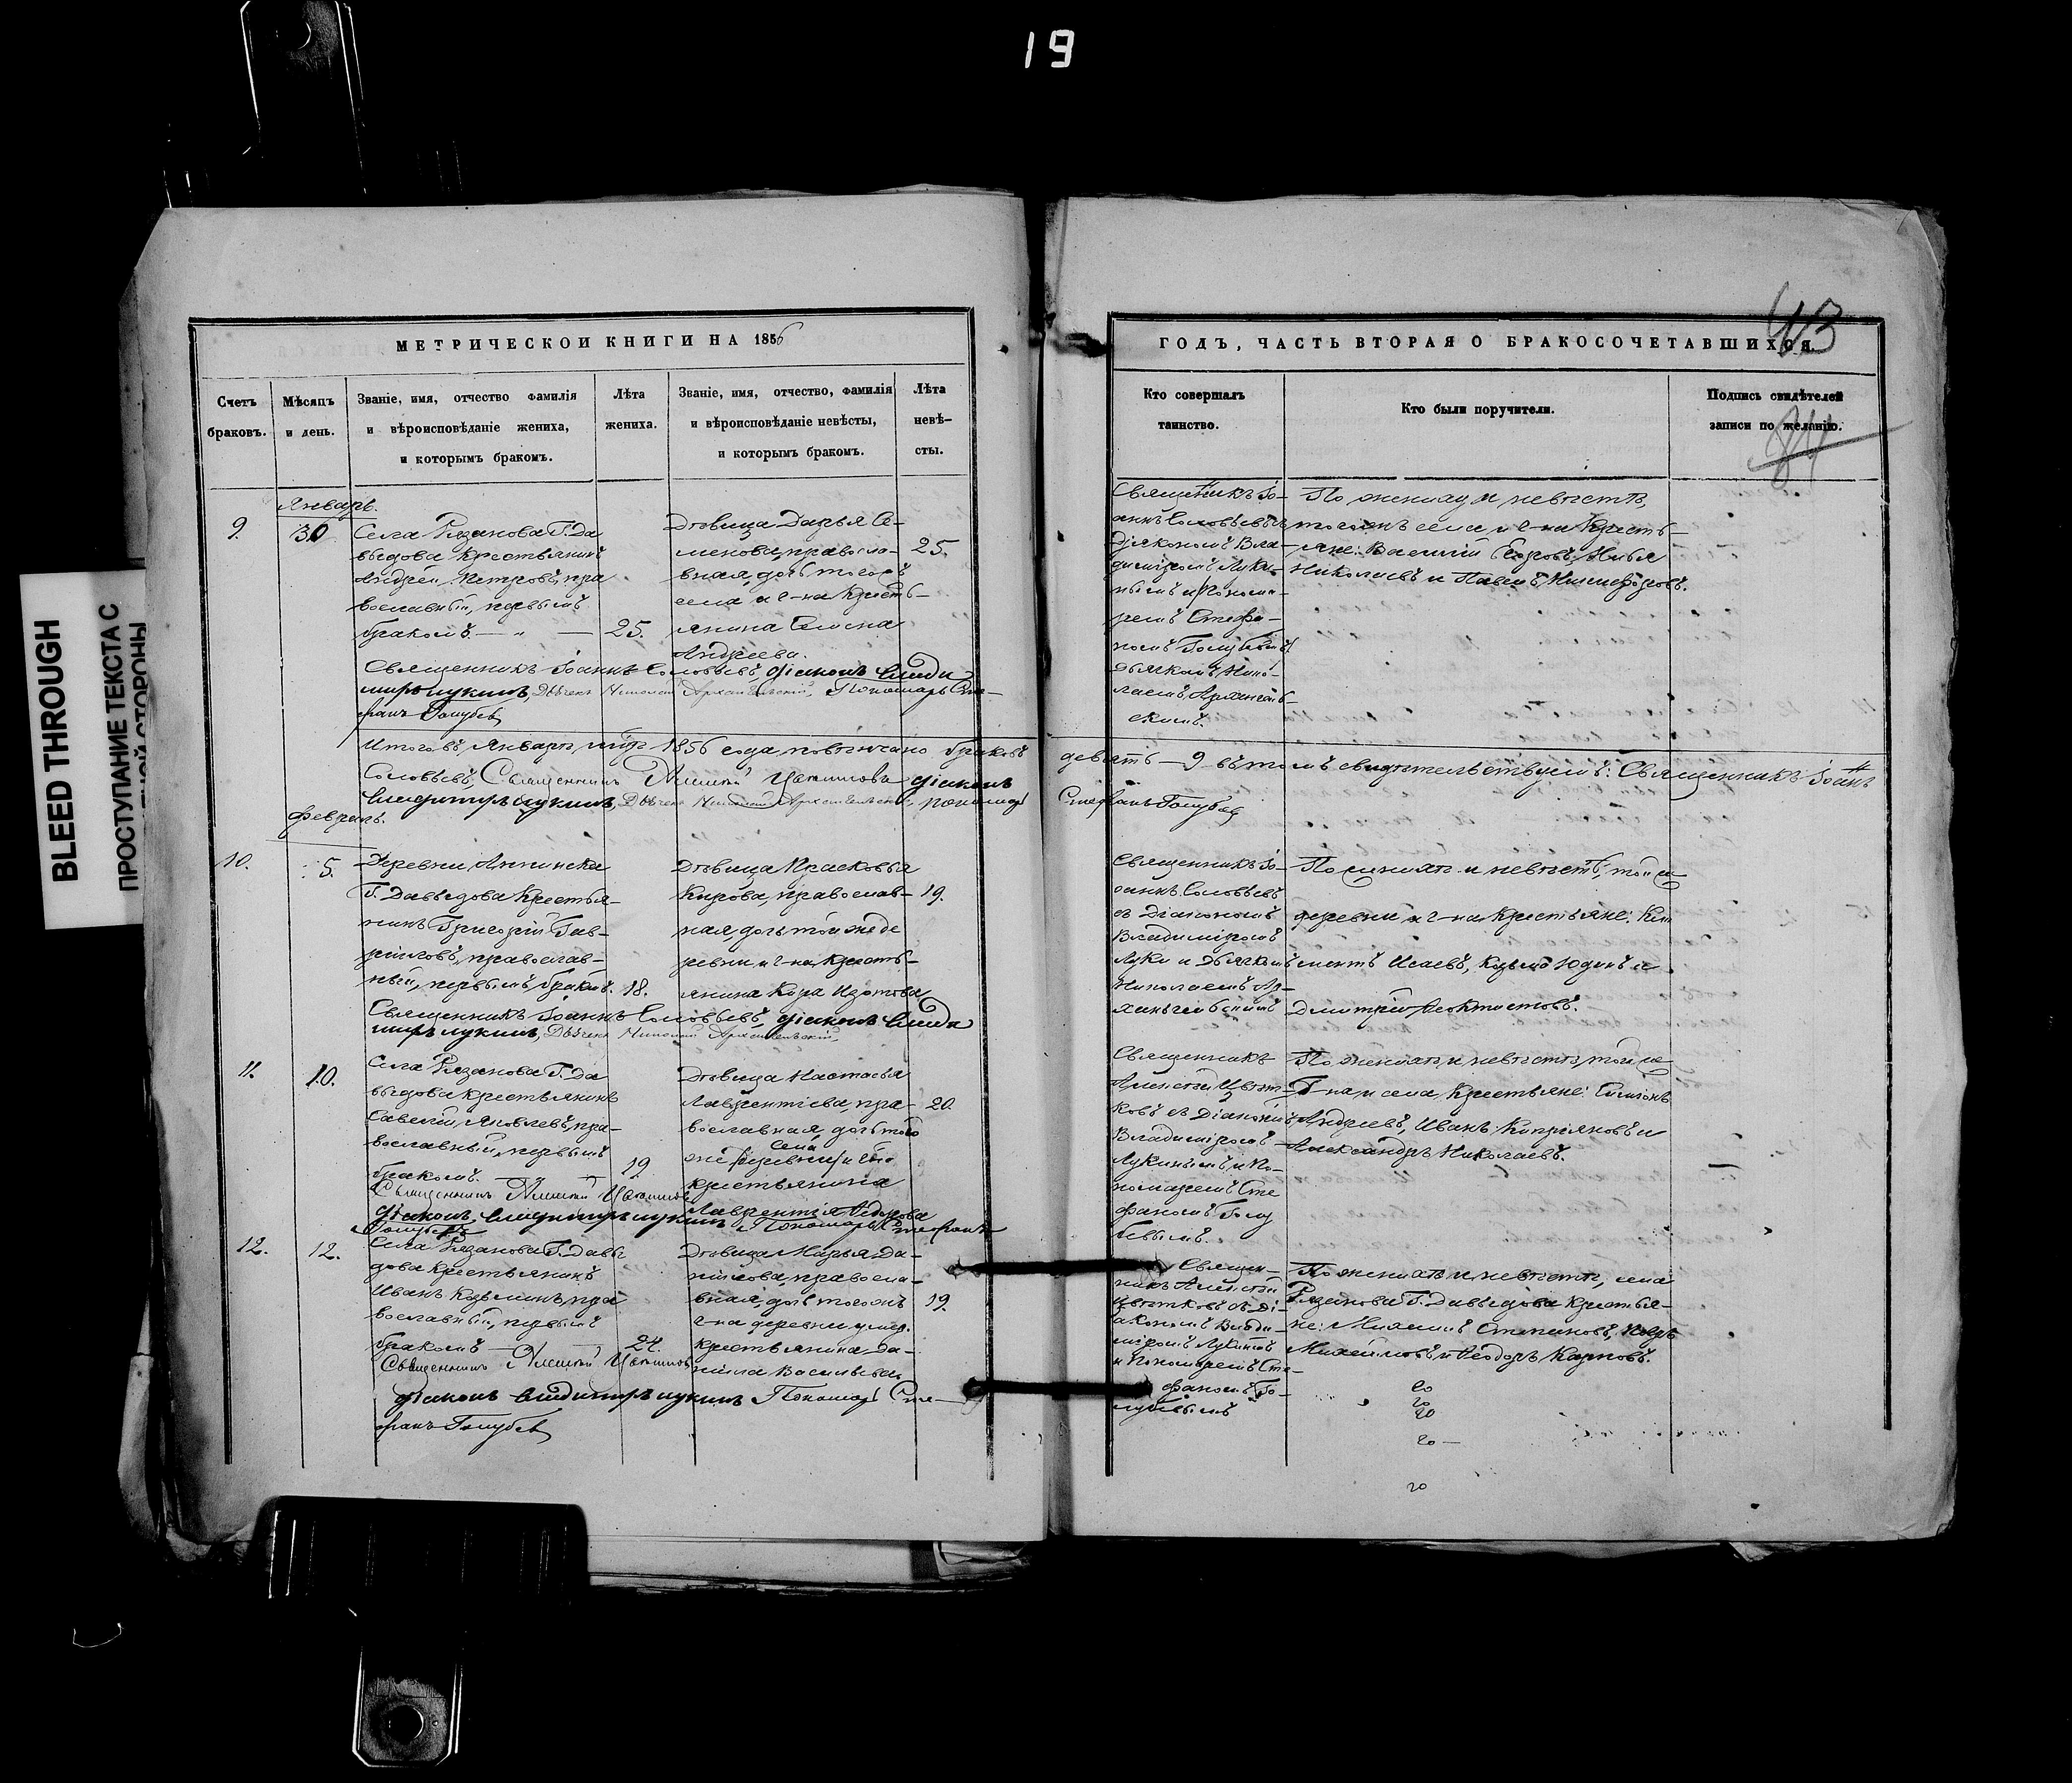 19
BLEED THROUGH
ПРОСТУПАНИЕ ТЕКСТА С
СТОРОНЫ
МЕТРИЧЕСКОЙ КНИГИ НА 1856
Счетъ браковъ.
Мѣсяцъ и день.
Званіе, имя, отчество фамилія
и вѣроисповѣданіе жениха,
и которымъ бракомъ.
Лѣта
жениха.
Званіе, имя, отчество, фамилія
и вѣроисповѣданіе невѣсты,
и которымъ бракомъ.
Лѣта
невѣ-
сты.
Январь.
9.
30
Села Рязанова Г. Да
выдова крестьянинъ
Андрей Петровъ, пра
вославный, первымъ
бракомъ — „ —
25.
Дѣвица Дарья Се-
менова, правосла-
вная, дочь тогожъ
села и г-на кресть-
янина Семена
Андреева.
25.
Священникъ Іоаннъ Соловьевъ, Діаконъ Влади
миръ Лукинъ, Дьячекъ Николай Архангельскій, Пономарь Сте-
фанъ Голубев
Итого въ Январѣ мцѣ 1856 года повѣнчано браковъ
Соловьевъ, Священникъ Алексѣй Цвѣтковъ Діаконъ
Владимиръ Лукинъ, Дьячекъ Николай Архангельскій Пономарь
Февраль.
10.
5.
Деревни Аннинска
Г. Давыдова Крестья-
нинъ Григорій Гав-
риловъ, православ-
ный, первымъ бракомъ.
18.
Дѣвица Прасковья
Кирова, православ-
ная, дочь той же де
ревни и г-на кресть-
янина Кира Изотова
19.
Священникъ Іоаннъ Соловьевъ, Діаконъ Влади
миръ Лукинъ, Дьячекъ Николай Архангельскій
11.
10.
Села Рязанова Г. Да
выдова крестьянинъ
Савелій Яковлевъ, пра-
вославный, первымъ
бракомъ.
19
Дѣвица Настасья
Лаврентіева, пра-
вославная, дочь того
села
же (деревни) и г-на
крестьянина
Лаврентія Ѳедорова
20.
Священникъ Алексѣй Цвѣтковъ
Діаконъ Владимиръ Лукинъ и Пономарь Стефанъ
Голубевъ
12.
12.
Села Рязанова Г. Давы
дова крестьянинъ
Иванъ Козьминъ, пра
вославный, первымъ
бракомъ —
24.
Дѣвица Марья Да-
нилова, правосла-
вная, дочь тогожъ
г-на деревни умер.
крестьянина Да-
нила Васильева
19.
Священникъ Алексѣй Цвѣтковъ
Діаконъ Владимиръ Лукинъ Пономарь Сте-
фанъ Голубев
43
ГОДЪ, ЧАСТЬ ВТОРАЯ О БРАКОСОЧЕТАВШИХСЯ.
Кто совершалъ
таинство.
Кто были поручители.
Подпись свидѣтелей
записи по желанію.
84
Священникъ Іо-
аннъ Соловьевъ съ
Діакономъ Вла-
диміромъ Луки-
нымъ и Понома-
ремъ Стефа-
номъ Голубевымъ
Дьячкомъ Нико-
лаемъ Архангель-
скимъ.
По жениху и невѣстѣ,
тогожъ села и г-на Кресть-
яне: Василій Ѳедоровъ, Илья
Николаевъ и Павелъ Никифоровъ.
девять — 9 въ томъ свидѣтельствуемъ: Священникъ Іоаннъ
Стефанъ Голубев
Священникъ Іо-
аннъ Соловьевъ
съ Діакономъ
Владиміромъ
Луки и Дьячкомъ
Николаемъ Ар-
хангельскимъ
По женихѣ и невѣстѣ, той же
деревни и г-на крестьяне: Кли
ментъ Исаевъ, Козьма Юдинъ и
Дмитрій Ѳеоктистовъ.
Священникъ
Алексѣй Цвѣт-
ковъ съ Діакономъ
Владиміромъ
Лукинымъ и По-
номаремъ Сте
фаномъ Голу
бевымъ.
По женихѣ и невѣстѣ, того же
Г-на и села Крестьяне: Симіонъ
Андреевъ, Иванъ Кипріяновъ и
Александръ Николаевъ.
Священ-
никъ Алексѣй
Цвѣтковъ съ Ді-
акономъ Влади-
міромъ Лукинымъ
и Пономаремъ Сте-
фаномъ Го-
лубевымъ
По женихѣ и невѣстѣ, села
Рязанова Г. Давыдова крестья-
не: Максимъ Степановъ,
Михайловъ и Ѳеодоръ Карповъ.
20
20
20
20 —
20